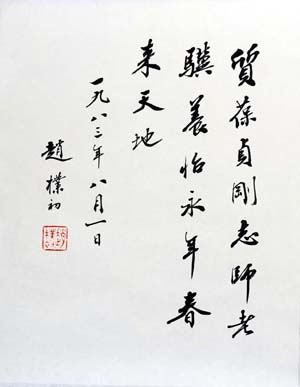 質葆貞剛志師老
驥養怡永年春
来天地
一九八三年八月一日
趙樸初